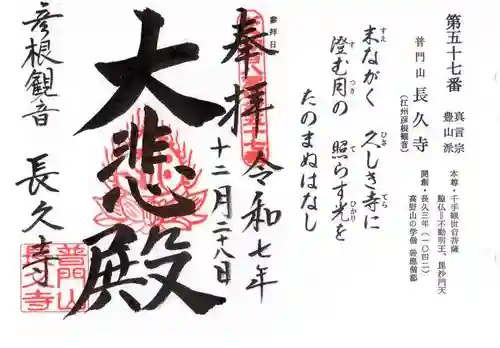 第五十七番
真言宗
豊山派
普門山 長久寺
(江州彦根観音)
本尊・千手観世音菩薩
脇仏=不動明王、毘沙門天
開創・長久三年(一〇四二)
高野山の学僧 善應僧都
末ながく 久しき寺に
すえ ひさ てら
澄む月の 照らす光を
す つき て ひかり
たのまぬはなし
参拝日
奉拝
令和七年
十二月二十八日
大悲殿
彦根観音 長久寺
普門山
長久寺